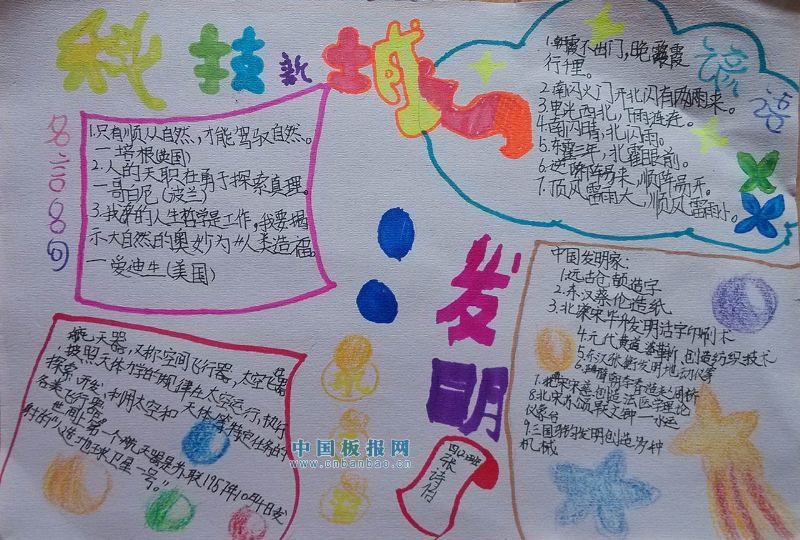 科技新城
名言名句
1.只有顺从自然,才能驾驭自然。
—培根(英国)
2.人的天职在勇于探索真理。
—哥白尼(波兰)
3.我的人生哲学是工作,我要揭
示大自然的奥妙为人类造福。
—爱迪生(美国)
谚语
1.朝霞不出门,晚霞
行千里。
2.南闪火门开北闪有雨来。
3.电光西北,下雨连连。
4.南闪晴,北闪雨。
5.东霍三年,北霍眼前。
6.逆阵易来,顺阵易开。
7.顶风雷雨大,顺风雷雨小。
发明
中国发明家:
1.远古仓颉造字
2.东汉蔡伦造纸
3.北宋毕升发明活字印刷术
4.元代黄道婆革新、创造纺织技术
5.东汉张衡发明地动仪等
7.北宋宋慈创造法医学理论
8.北宋苏颂最大钟—水运
仪象台
9.三国马钧发明创造多种
机械
航天器,又称空间飞行器、太空飞行器
按照天体力学的规律在太空运行,执行
探索、开发、利用太空和天体等特定任务的
各类飞行器。
世间上第一个航天器是苏联1957年10月4日发
射的"人造地球卫星一号。"
四(2)班
张诗倩
中国板报网
www.cnbanbao.cn